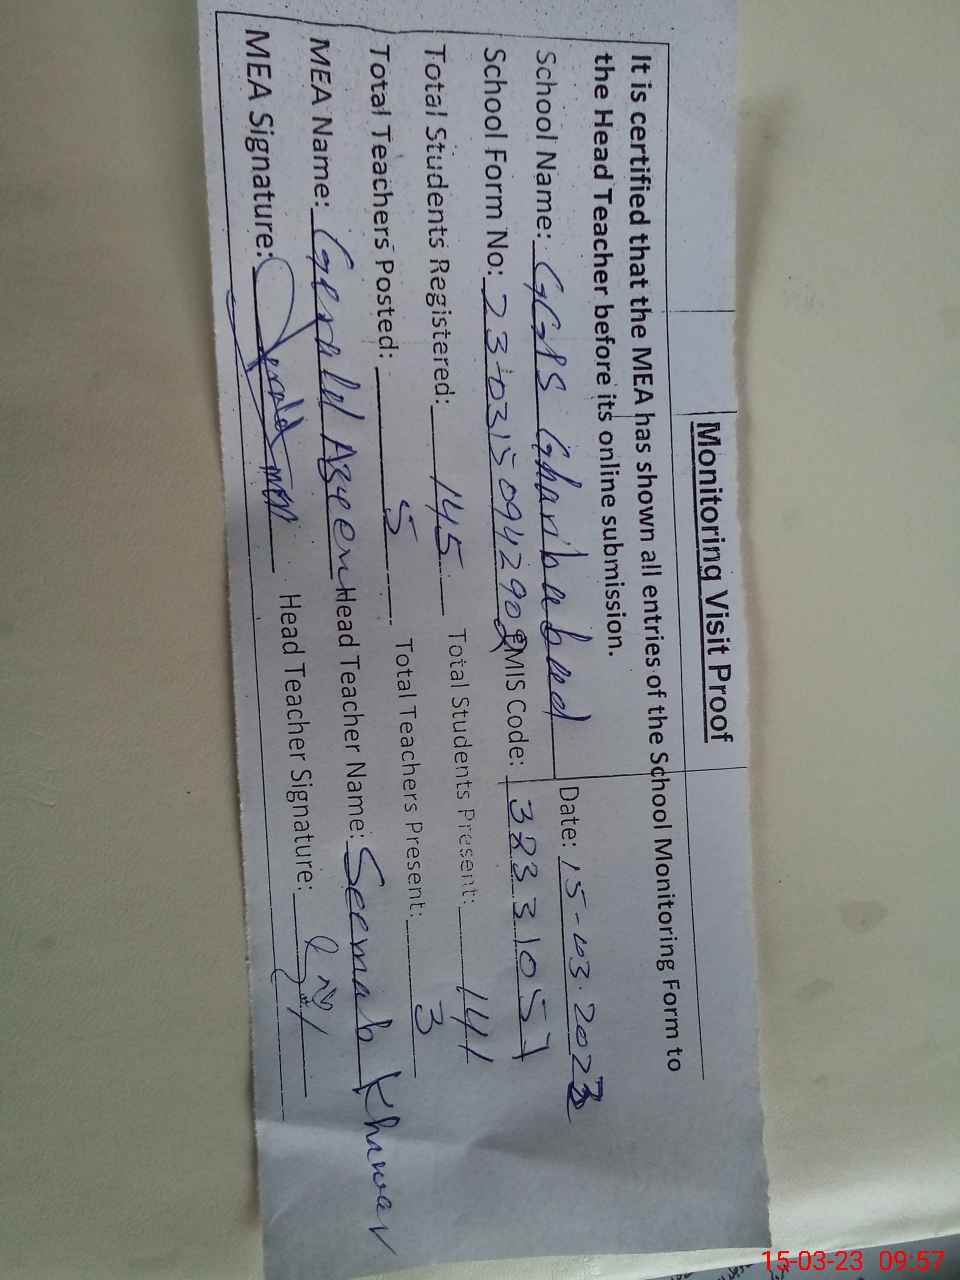 Monitoring Visit Proof
It is certified that the MEA has shown all entries of the School Monitoring Form to
the Head Teacher before its online submission.
School Name: GGPS Gharibabad Date: 15-03-2023
School Form No: 23-0315094290 EMIS Code: 38331057
Total Students Registered: 145 Total Students Present: 141
Total Teachers Posted: 5 Total Teachers Present: 3
MEA Name: Gerald Azeem Head Teacher Name: Seemab Khawar
MEA Signature: Gerald MEA Head Teacher Signature:
15-03-23 09:57